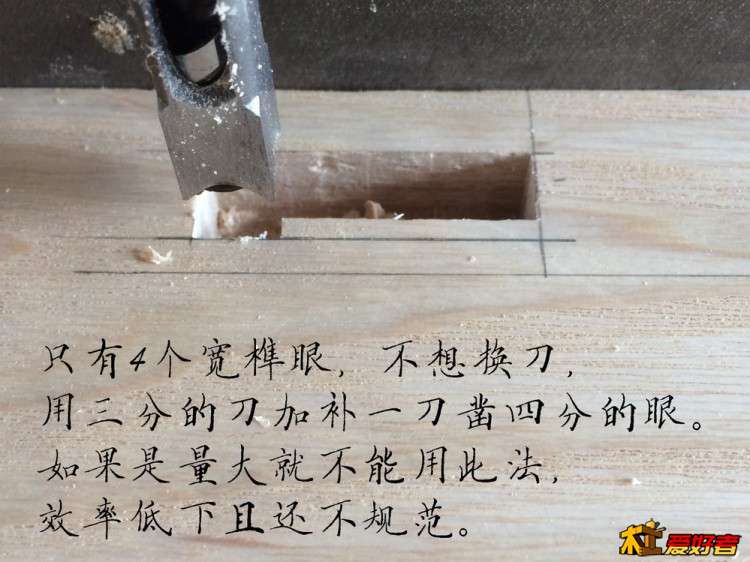 只有4个宽榫眼，不想换刀，
用三分的刀加补一刀凿四分的眼。
如果是量大就不能用此法，
效率低下且还不规范。
木工爱好者